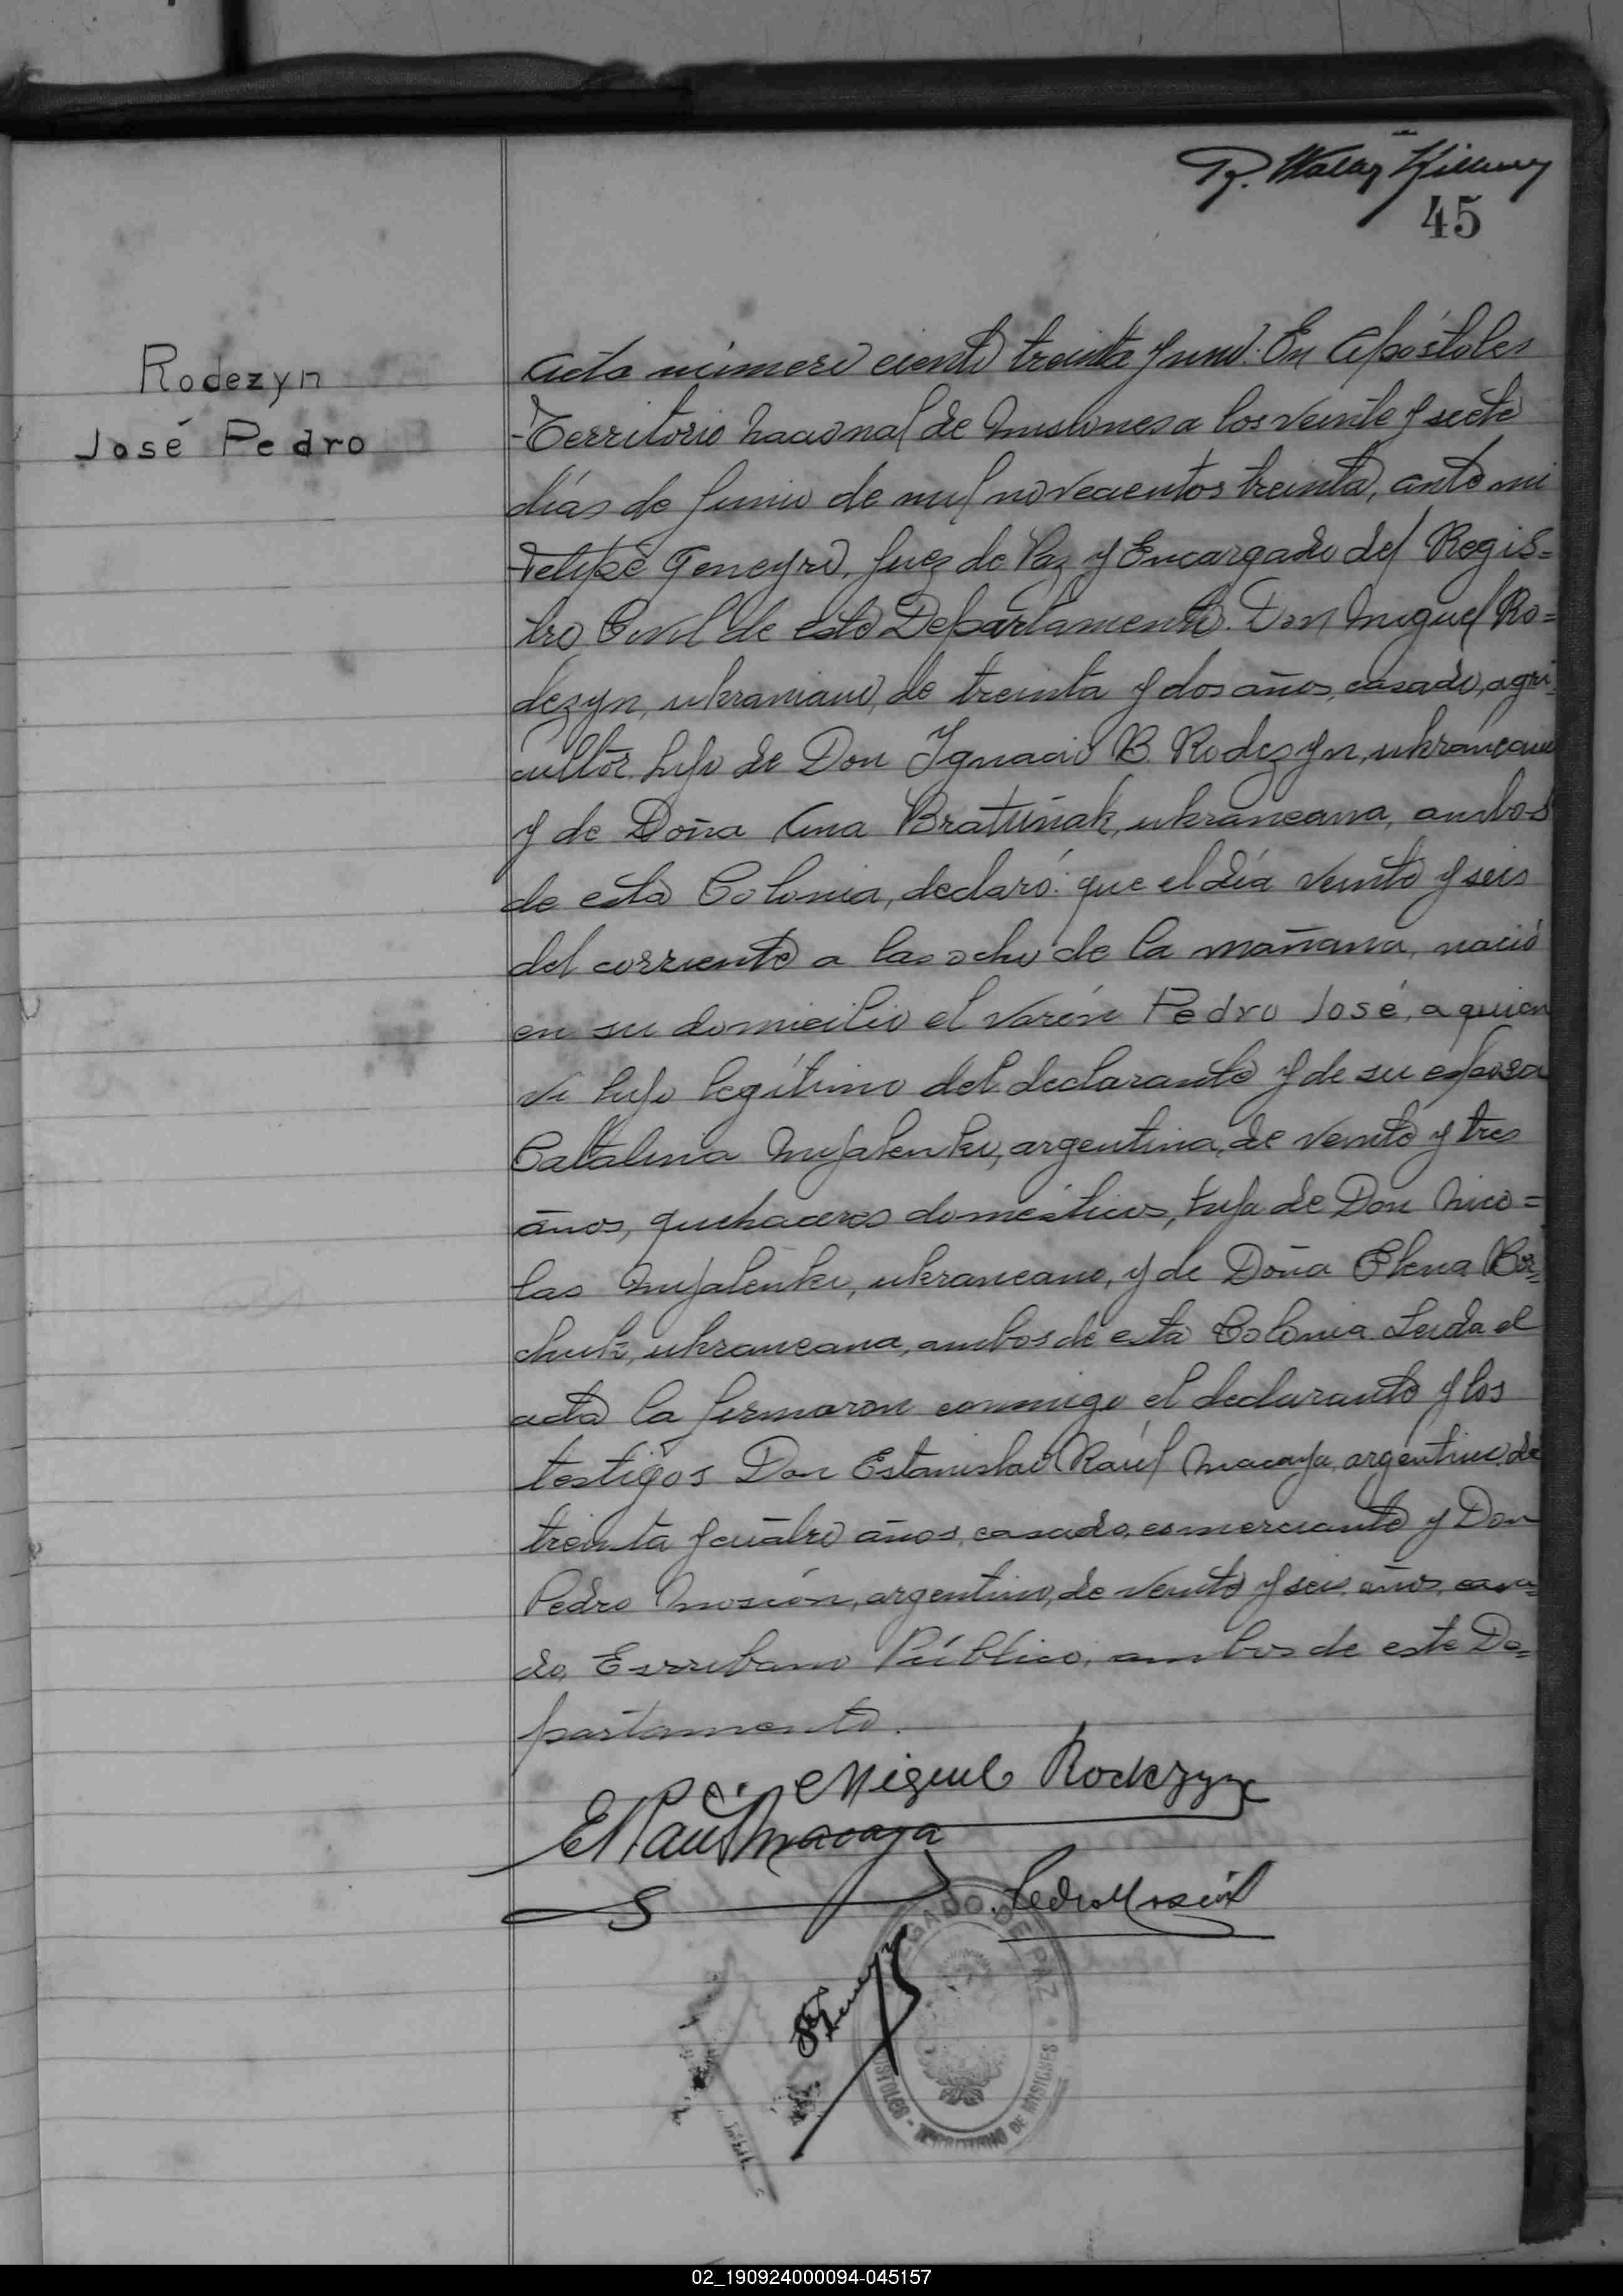 45
Rodezyn
José Pedro
Acta número ciento treinta y uno. En Apóstoles
Territorio nacional de Misiones a los veinte y siete
días de Junio de mil novecientos treinta, ante mi
Felipe Geneyro, Juez de Paz y Encargado del Regis=
tro Civil de este Departamento. Don Miguel Ro=
dezyn, ukraniano, de treinta y dos años, casado, agri-
cultor hijo de Don Ignacio B. Rodezyn, ukraneano
y de Doña Ana Bratuñak, ukraneana, ambos
de esta Colonia, declaró: que el día veinte y seis
del corriente a las ocho de la mañana, nació
en su domicilio el varón Pedro José, a quien
vi hijo legítimo del declarante y de su esposa
Catalina Mujalenko, argentina, de veinte y tres
años, quehaceres domésticos, hija de Don Nico=
las Mujalenko, ukraneano, y de Doña Elena Bor=
chuk, ukraneana, ambos de esta Colonia Leida el
acta la firmaron conmigo el declarante y los
testigos Don Estanislao Raúl Macaya, argentino, de
treinta y cuatro años, casado, comerciante y Don
Pedro Mosión, argentino, de veinte y seis años, casa=
do, Escribano Público, ambos de este De=
partamento.
Miguel Rodezyn
E Raúl Macaya
Pedro Mosión
JUZGADO DE PAZ
APOSTOLES - TERRITORIO DE MISIONES
02_190924000094-045157